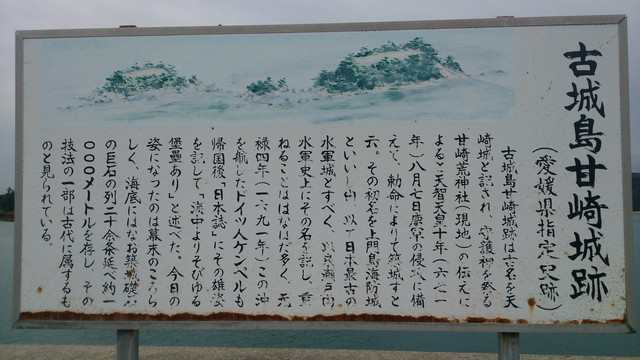 古城島甘崎城跡
(愛媛県指定史跡)
古城島甘崎城跡は古名を天
崎城と記され、守護神を祭る
甘崎荒神社(現地)の伝えに
よると天智天皇十年(六七一
年)八月七日唐軍の侵攻に備
えて、勅命によりて築城すと
云。その初名を上門島海防城
といい
以て日本最古の
水軍城とすべく、以来瀬戸内
水軍史上にその名を記し、重
ねることはなはだ多く、元
禄四年(一六九一年)この沖
を航したドイツ人ケンペルも
帰国後「日本誌」にその雄姿
を記して「海中よりそびゆる
堡塁あり」と述べた。今日の
姿になったのは幕末のころら
しく、海底にはなお築城礎石
の巨石の列二十余条延べ約一
〇〇〇メートルを存し、その
技法の一部は古代に属するも
のと見られている。